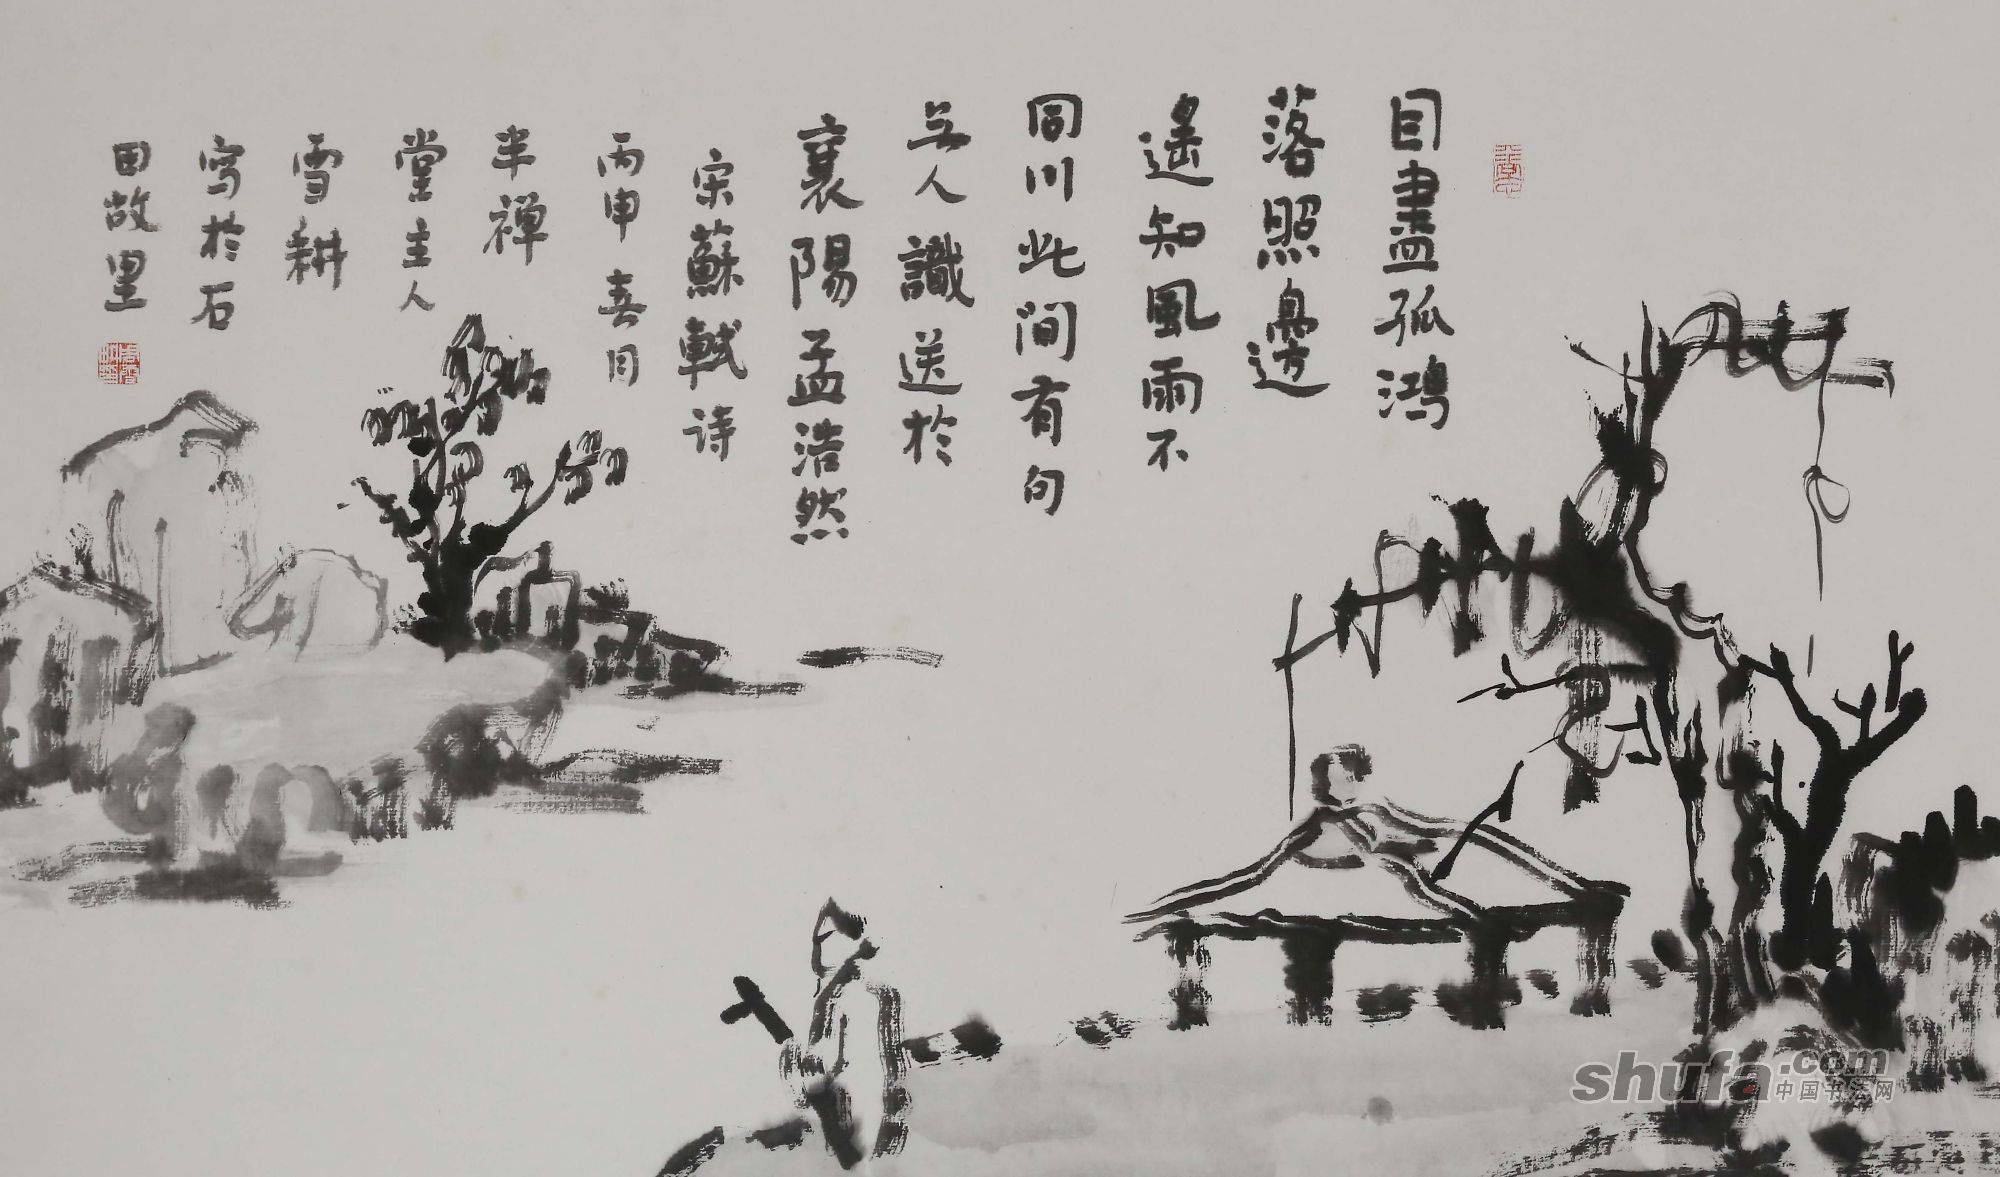 目盡孤鴻
落照邊
遙知風雨不
同川此間有句
无人識送於
襄陽孟浩然
宋蘇軾诗
丙申春月
半禅
堂主人
雪耕
寫於石
田故里
shufa.com
中国书法网